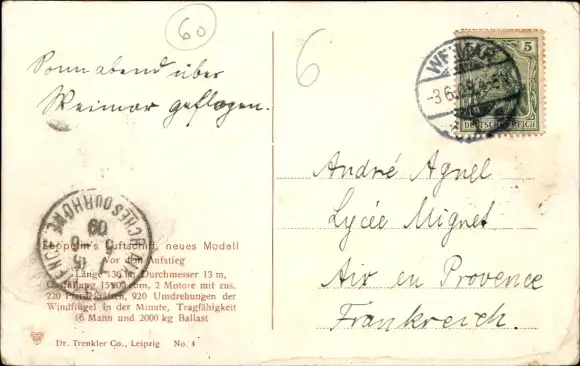 60
6
Sonnabend über
Weimar geflogen.
WEIMAR
5
DEUTSCHES REICH
André Agnel
Lycée Mignet
Aix en Provence
Frankreich.
BOUCHES DU RHONE
09
Zeppelin's Luftschiff, neues Modell
Vor dem Aufstieg
Länge 136 m, Durchmesser 13 m,
2 Motore mit zus.
220 Pferdekräften, 920 Umdrehungen der
Windflügel in der Minute, Tragfähigkeit
16 Mann und 2000 kg Ballast
Dr. Trenkler Co., Leipzig No. 4